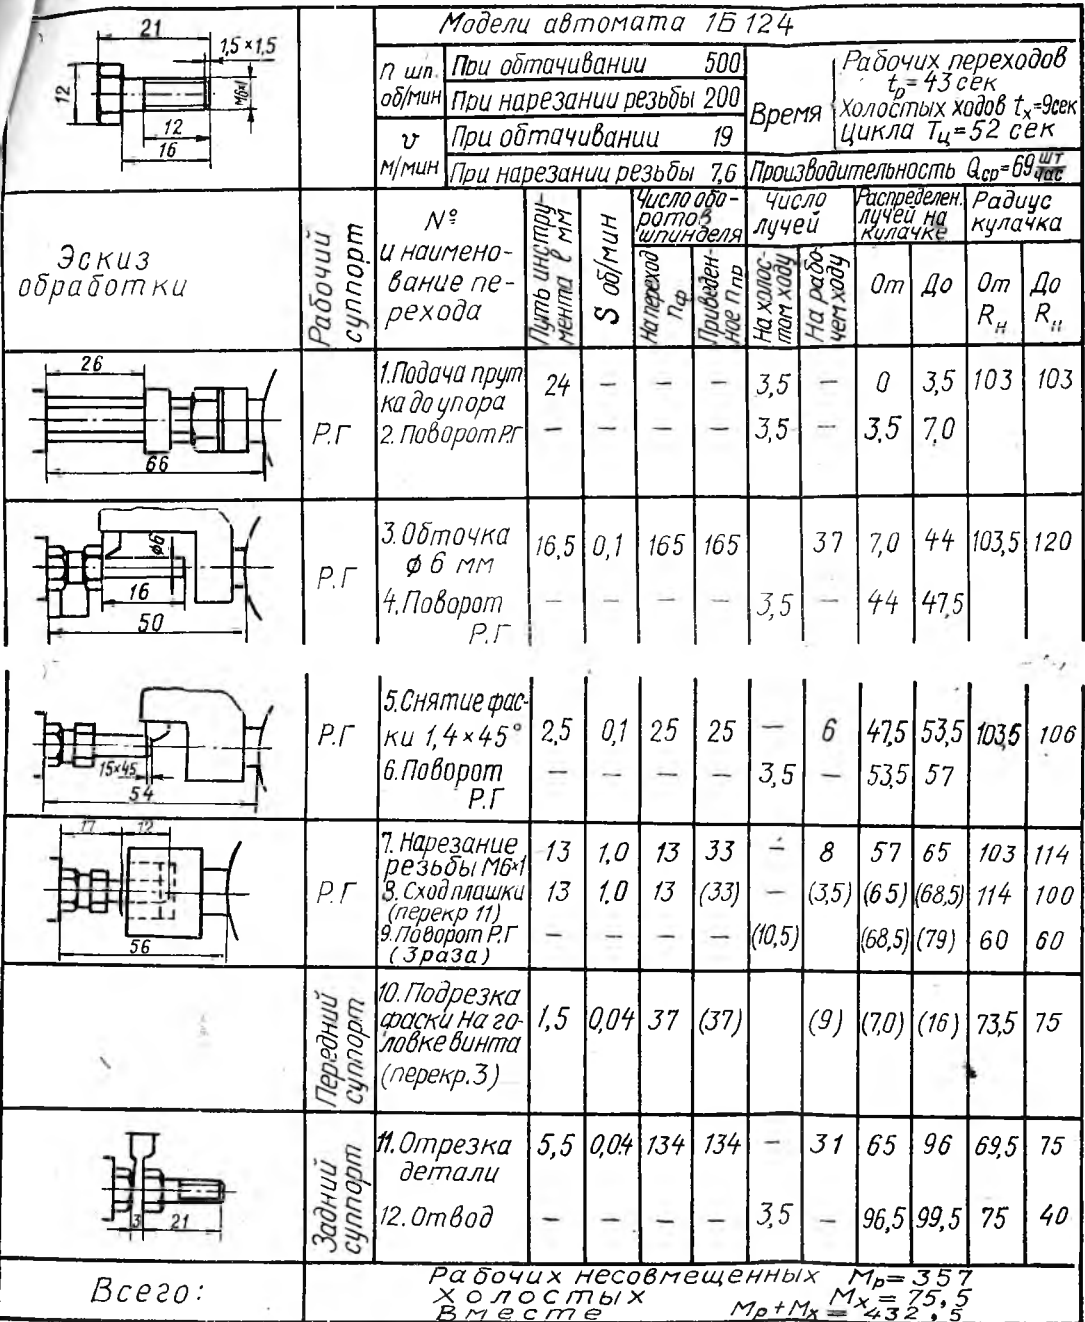 21
1,5×1,5
12
М6×1
12
16
Модели автомата 1Б124
n шп.
об/мин
При обтачивании 500
При нарезании резьбы 200
v
м/мин
При обтачивании 19
При нарезании резьбы 7,6
Время
Рабочих переходов
tр=43 сек
Холостых ходов tх=9сек
Цикла Тц=52 сек
Производительность Qср=69 шт/час
Эскиз
обработки
Рабочий
суппорт
№
и наимено-
вание пе-
рехода
Путь инстру-
мента в мм
S об/мин
Число обо-
ротов
шпинделя
На переход
nф
Приведен-
ное nпр
Число
лучей
На холос-
том ходу
На рабо-
чем ходу
Распределен.
лучей на
кулачке
От До
Радиус
кулачка
От
Rн
До
Rн
26
66
Р.Г
1.Подача прут
ка до упора 24 — — — 3,5 — 0 3,5 103 103
2. Поворот Р.Г — — — — 3,5 — 3,5 7,0
ф6
16
50
Р.Г
3.Обточка
ф 6 мм 16,5 0,1 165 165 37 7,0 44 103,5 120
4.Поворот
Р.Г — — — — 3,5 — 44 47,5
15×45
54
Р.Г
5.Снятие фас-
ки 1,4×45° 2,5 0,1 25 25 — 6 47,5 53,5 103,5 106
6.Поворот
Р.Г — — — — 3,5 — 53,5 57
17 12
56
Р.Г
7. Нарезание
резьбы М6×1 13 1,0 13 33 — 8 57 65 103 114
8. Сход плашки
(перекр 11) 13 1,0 13 (33) — (3,5) (65) (68,5) 114 100
9. Поворот Р.Г
(3 раза) — — — — (10,5) (68,5) (79) 60 60
Передний
суппорт
10. Подрезка
фаски на го-
ловке винта 1,5 0,04 37 (37) (9) (7,0) (16) 73,5 75
(перекр.3)
3 21
Задний
суппорт
11. Отрезка
детали 5,5 0,04 134 134 — 31 65 96 69,5 75
12. Отвод — — — — 3,5 — 96,5 99,5 75 40
Всего:
Рабочих несовмещенных Мр=357
Холостых Мх=75,5
Вместе Мр+Мх=432,5